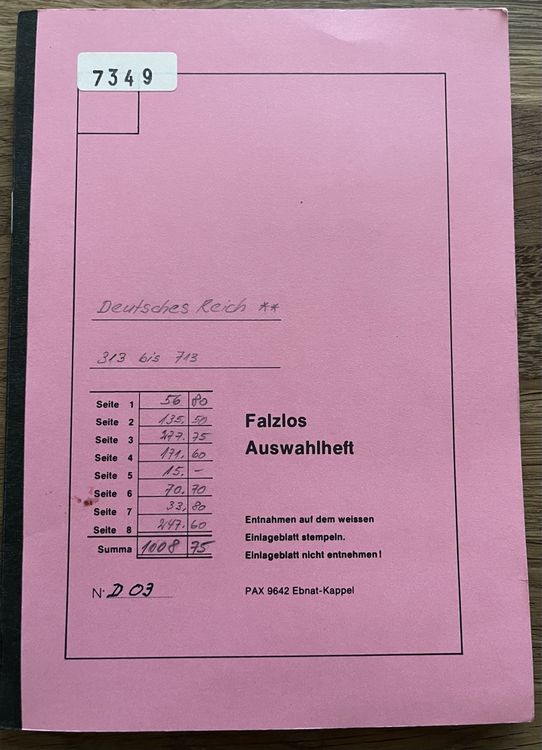 7349
Deutsches Reich **
313 bis 713
Seite 1 56 80
Seite 2 135. 50
Seite 3 277. 75
Seite 4 171. 60
Seite 5 15. -
Seite 6 70. 70
Seite 7 33. 80
Seite 8 247. 60
Summa 1008 75
N. D 03
Falzlos
Auswahlheft
Entnahmen auf dem weissen
Einlageblatt stempeln.
Einlageblatt nicht entnehmen!
PAX 9642 Ebnat-Kappel